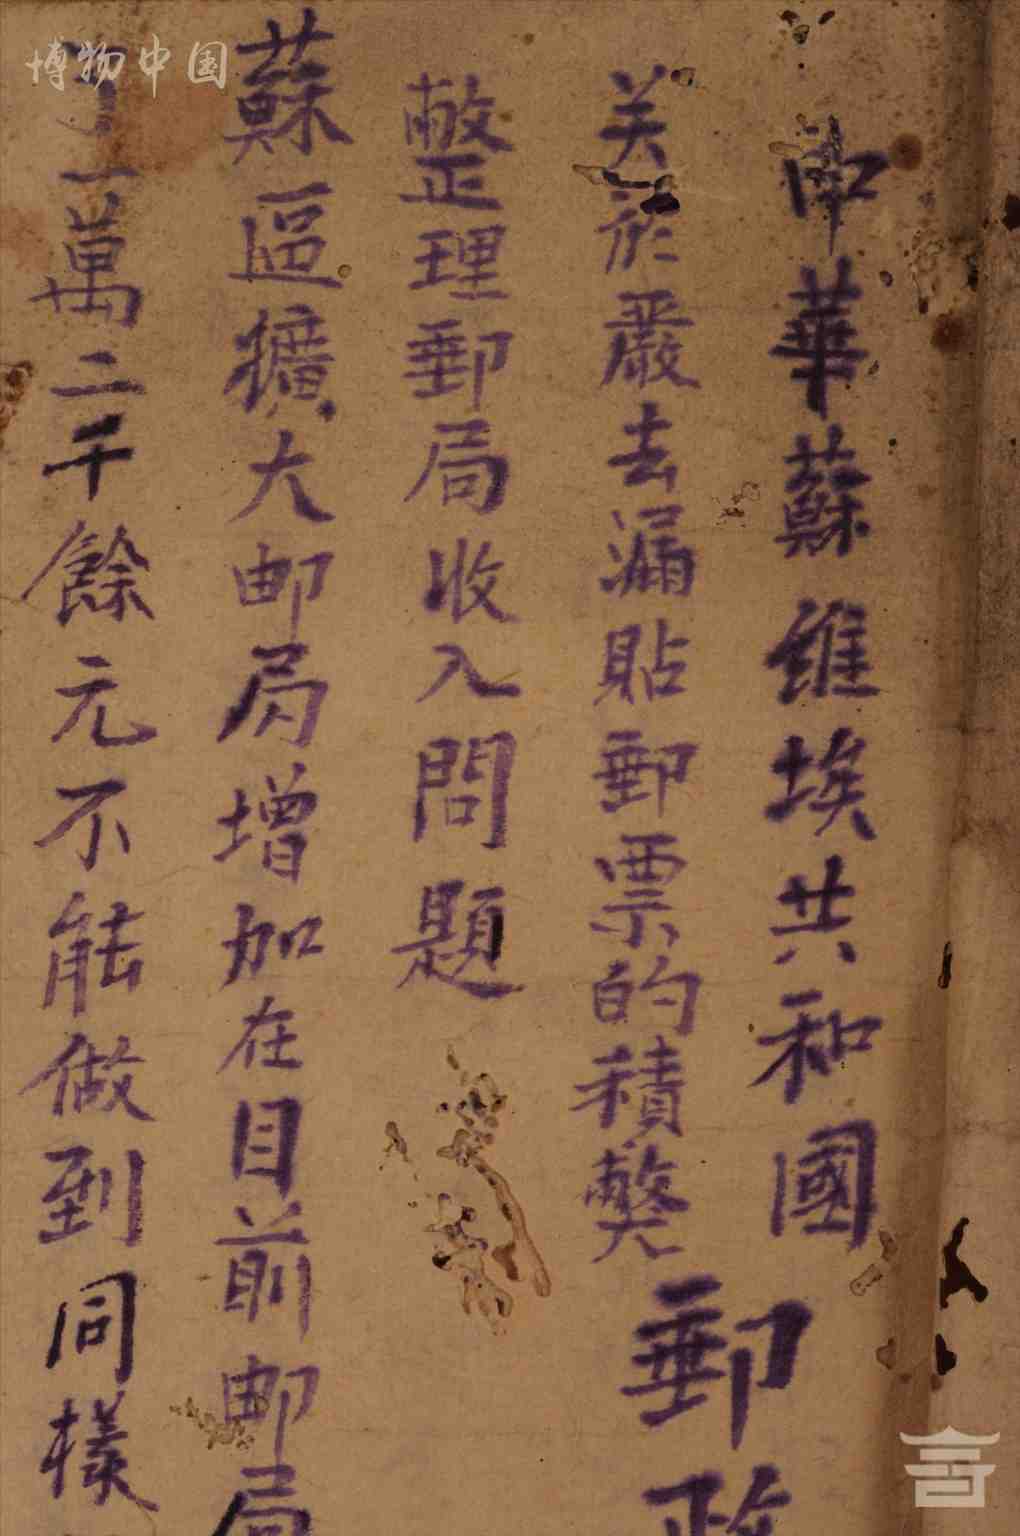 中華蘇維埃共和國
郵政
关於嚴去漏貼郵票的積獘
整理郵局收入問題
蘇區擴大邮局增加在目前邮局
一萬二千餘元不能做到同樣
博物中国